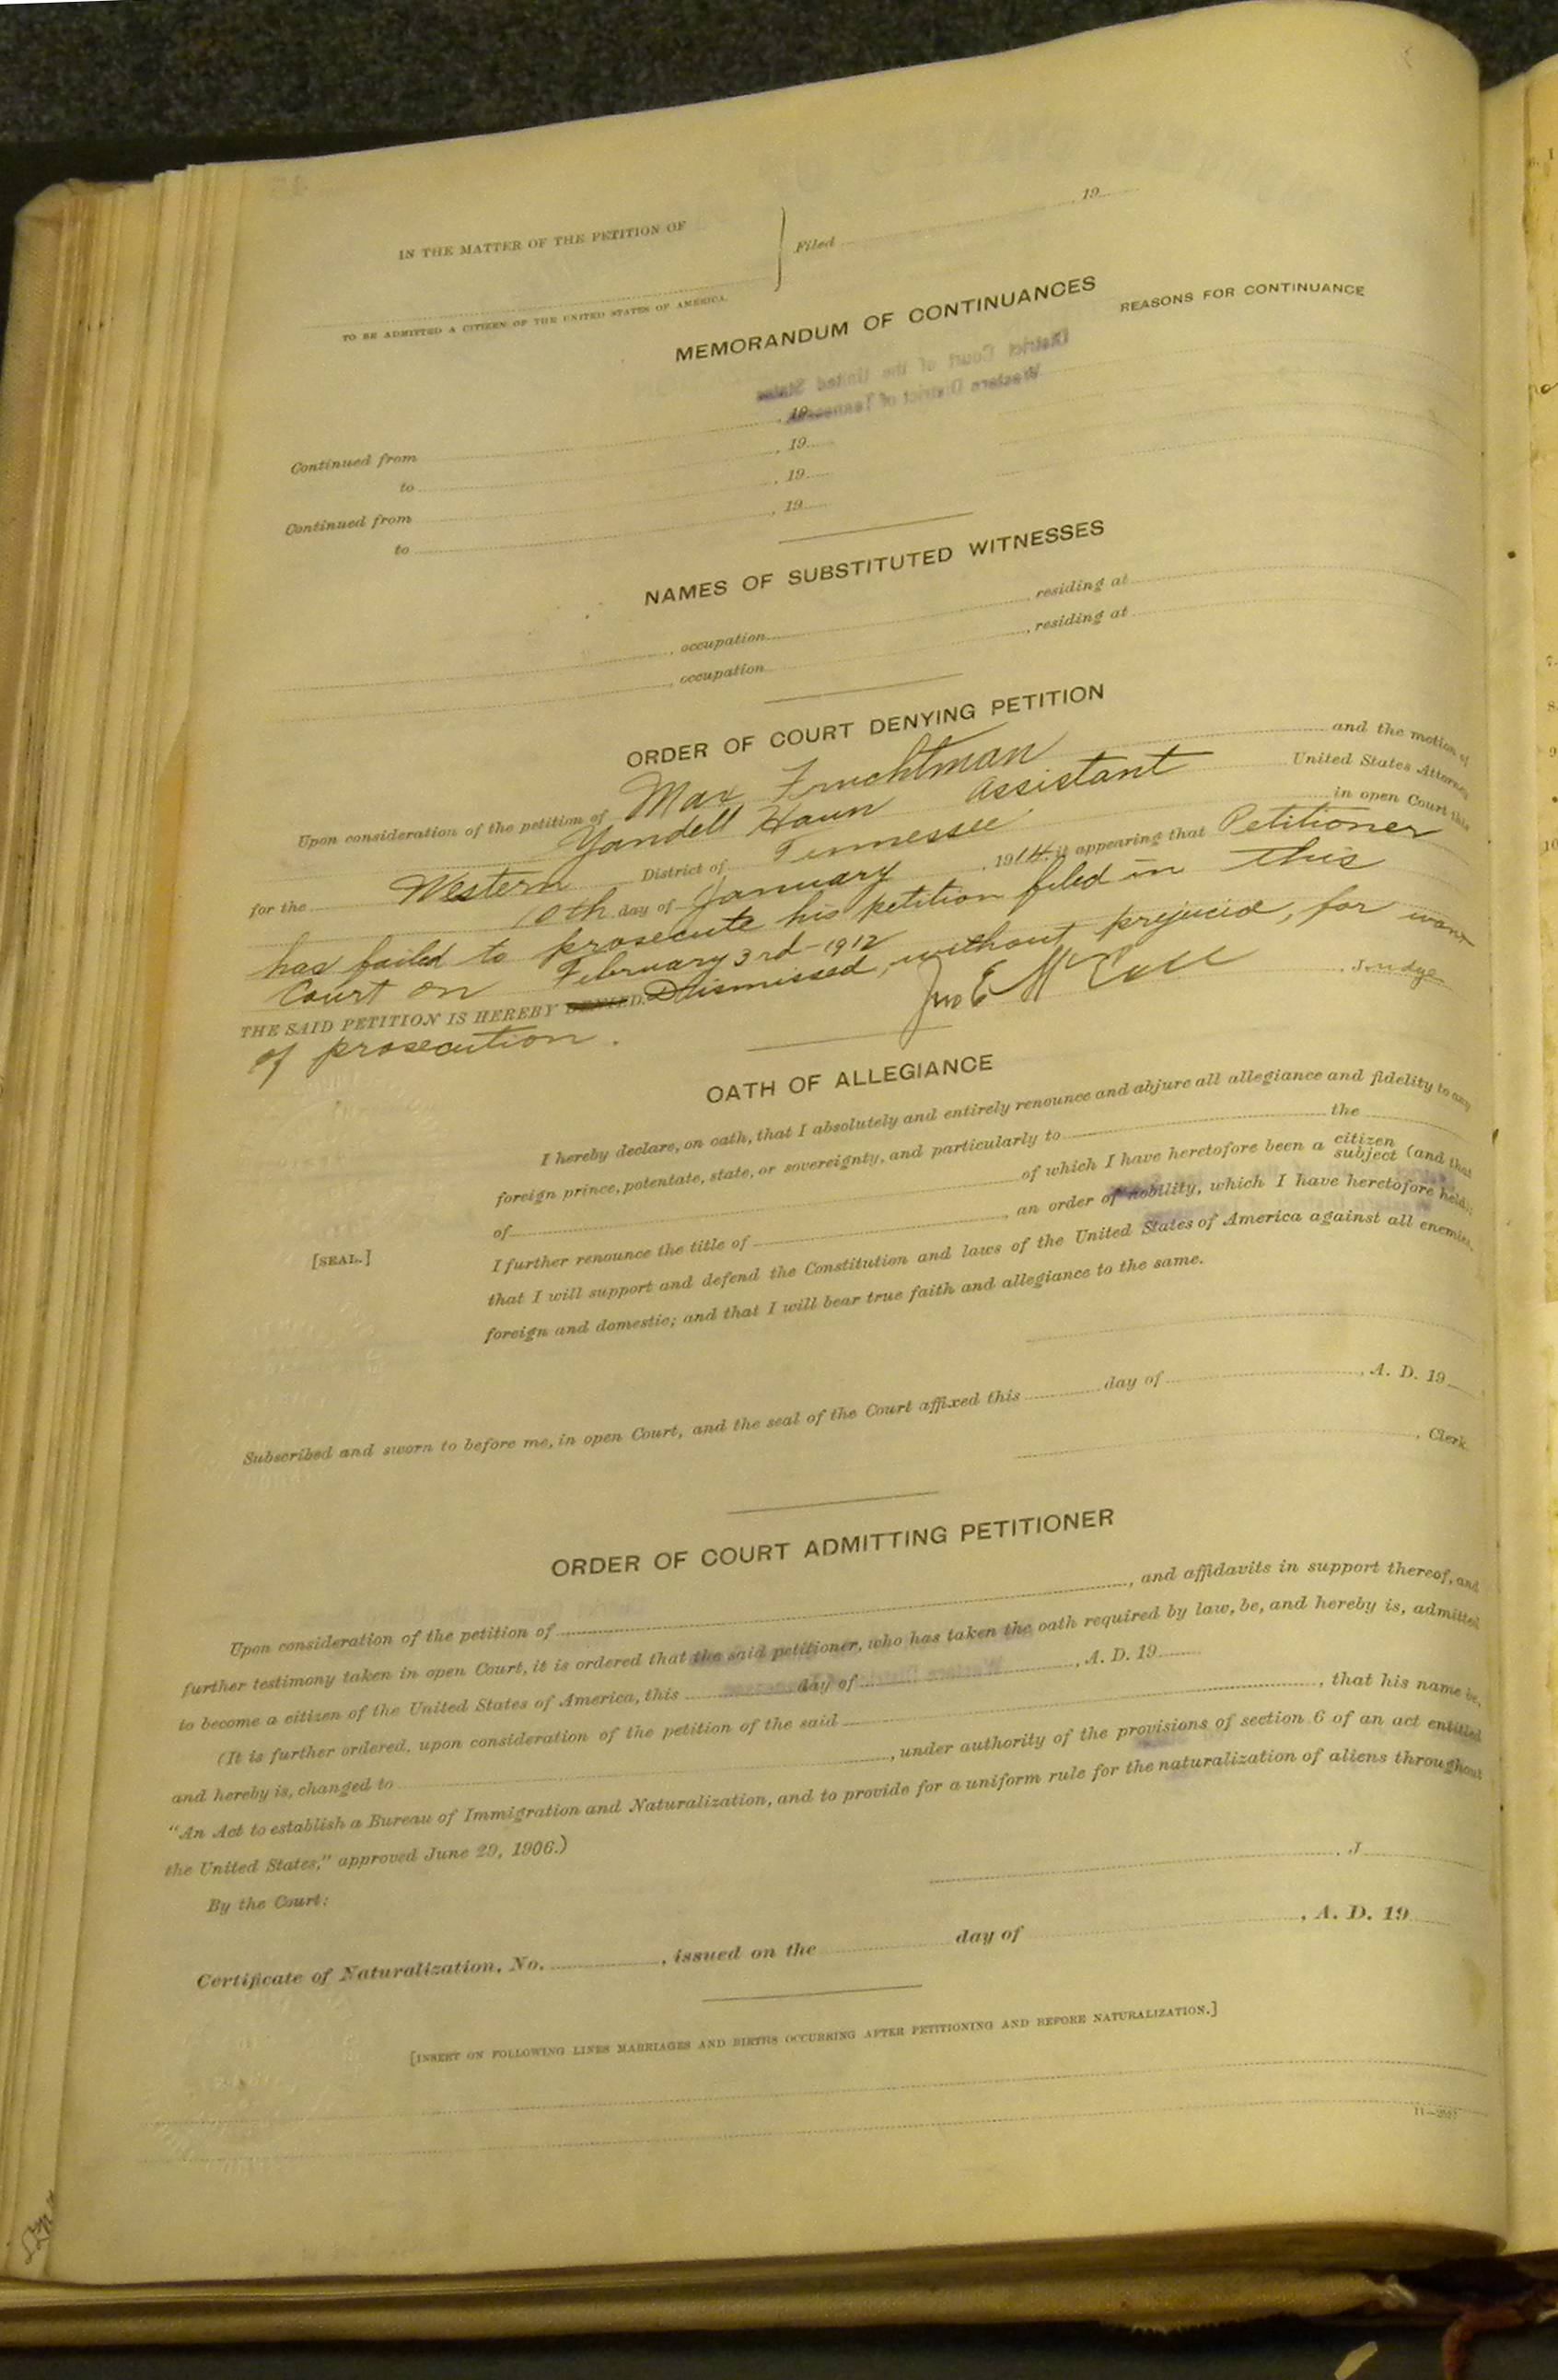 IN THE MATTER OF THE PETITION OF
Filed , 19
TO BE ADMITTED A CITIZEN OF THE UNITED STATES OF AMERICA.
MEMORANDUM OF CONTINUANCES
REASONS FOR CONTINUANCE
District Court of the United States
Western District of Tennessee
Continued from , 19
to , 19
Continued from , 19
to , 19
NAMES OF SUBSTITUTED WITNESSES
, occupation , residing at
, occupation , residing at
ORDER OF COURT DENYING PETITION
Upon consideration of the petition of Max Fruchtman and the motion of
Yandell Haun Assistant United States Attorney
for the Western District of Tennessee in open Court this
10th day of January , 1914. it appearing that Petitioner
has failed to prosecute his petition filed in this
Court on February 3rd-1912
THE SAID PETITION IS HEREBY DENIED. Dismissed, without prejucid, for want
of prosecution.
Jno E McCall , Judge
OATH OF ALLEGIANCE
I hereby declare, on oath, that I absolutely and entirely renounce and abjure all allegiance and fidelity to any
foreign prince, potentate, state, or sovereignty, and particularly to the
of of which I have heretofore been a citizen subject (and that
I further renounce the title of , an order of nobility, which I have heretofore held);
that I will support and defend the Constitution and laws of the United States of America against all enemies,
foreign and domestic; and that I will bear true faith and allegiance to the same.
[SEAL.]
Subscribed and sworn to before me, in open Court, and the seal of the Court affixed this day of , A. D. 19
, Clerk.
ORDER OF COURT ADMITTING PETITIONER
Upon consideration of the petition of , and affidavits in support thereof, and
further testimony taken in open Court, it is ordered that the said petitioner, who has taken the oath required by law, be, and hereby is, admitted
to become a citizen of the United States of America, this day of , A. D. 19
(It is further ordered, upon consideration of the petition of the said , that his name be,
and hereby is, changed to , under authority of the provisions of section 6 of an act entitled
"An Act to establish a Bureau of Immigration and Naturalization, and to provide for a uniform rule for the naturalization of aliens throughout
the United States," approved June 29, 1906.)
By the Court:
, J
Certificate of Naturalization, No. , issued on the day of , A. D. 19
[INSERT ON FOLLOWING LINES MARRIAGES AND BIRTHS OCCURRING AFTER PETITIONING AND BEFORE NATURALIZATION.]